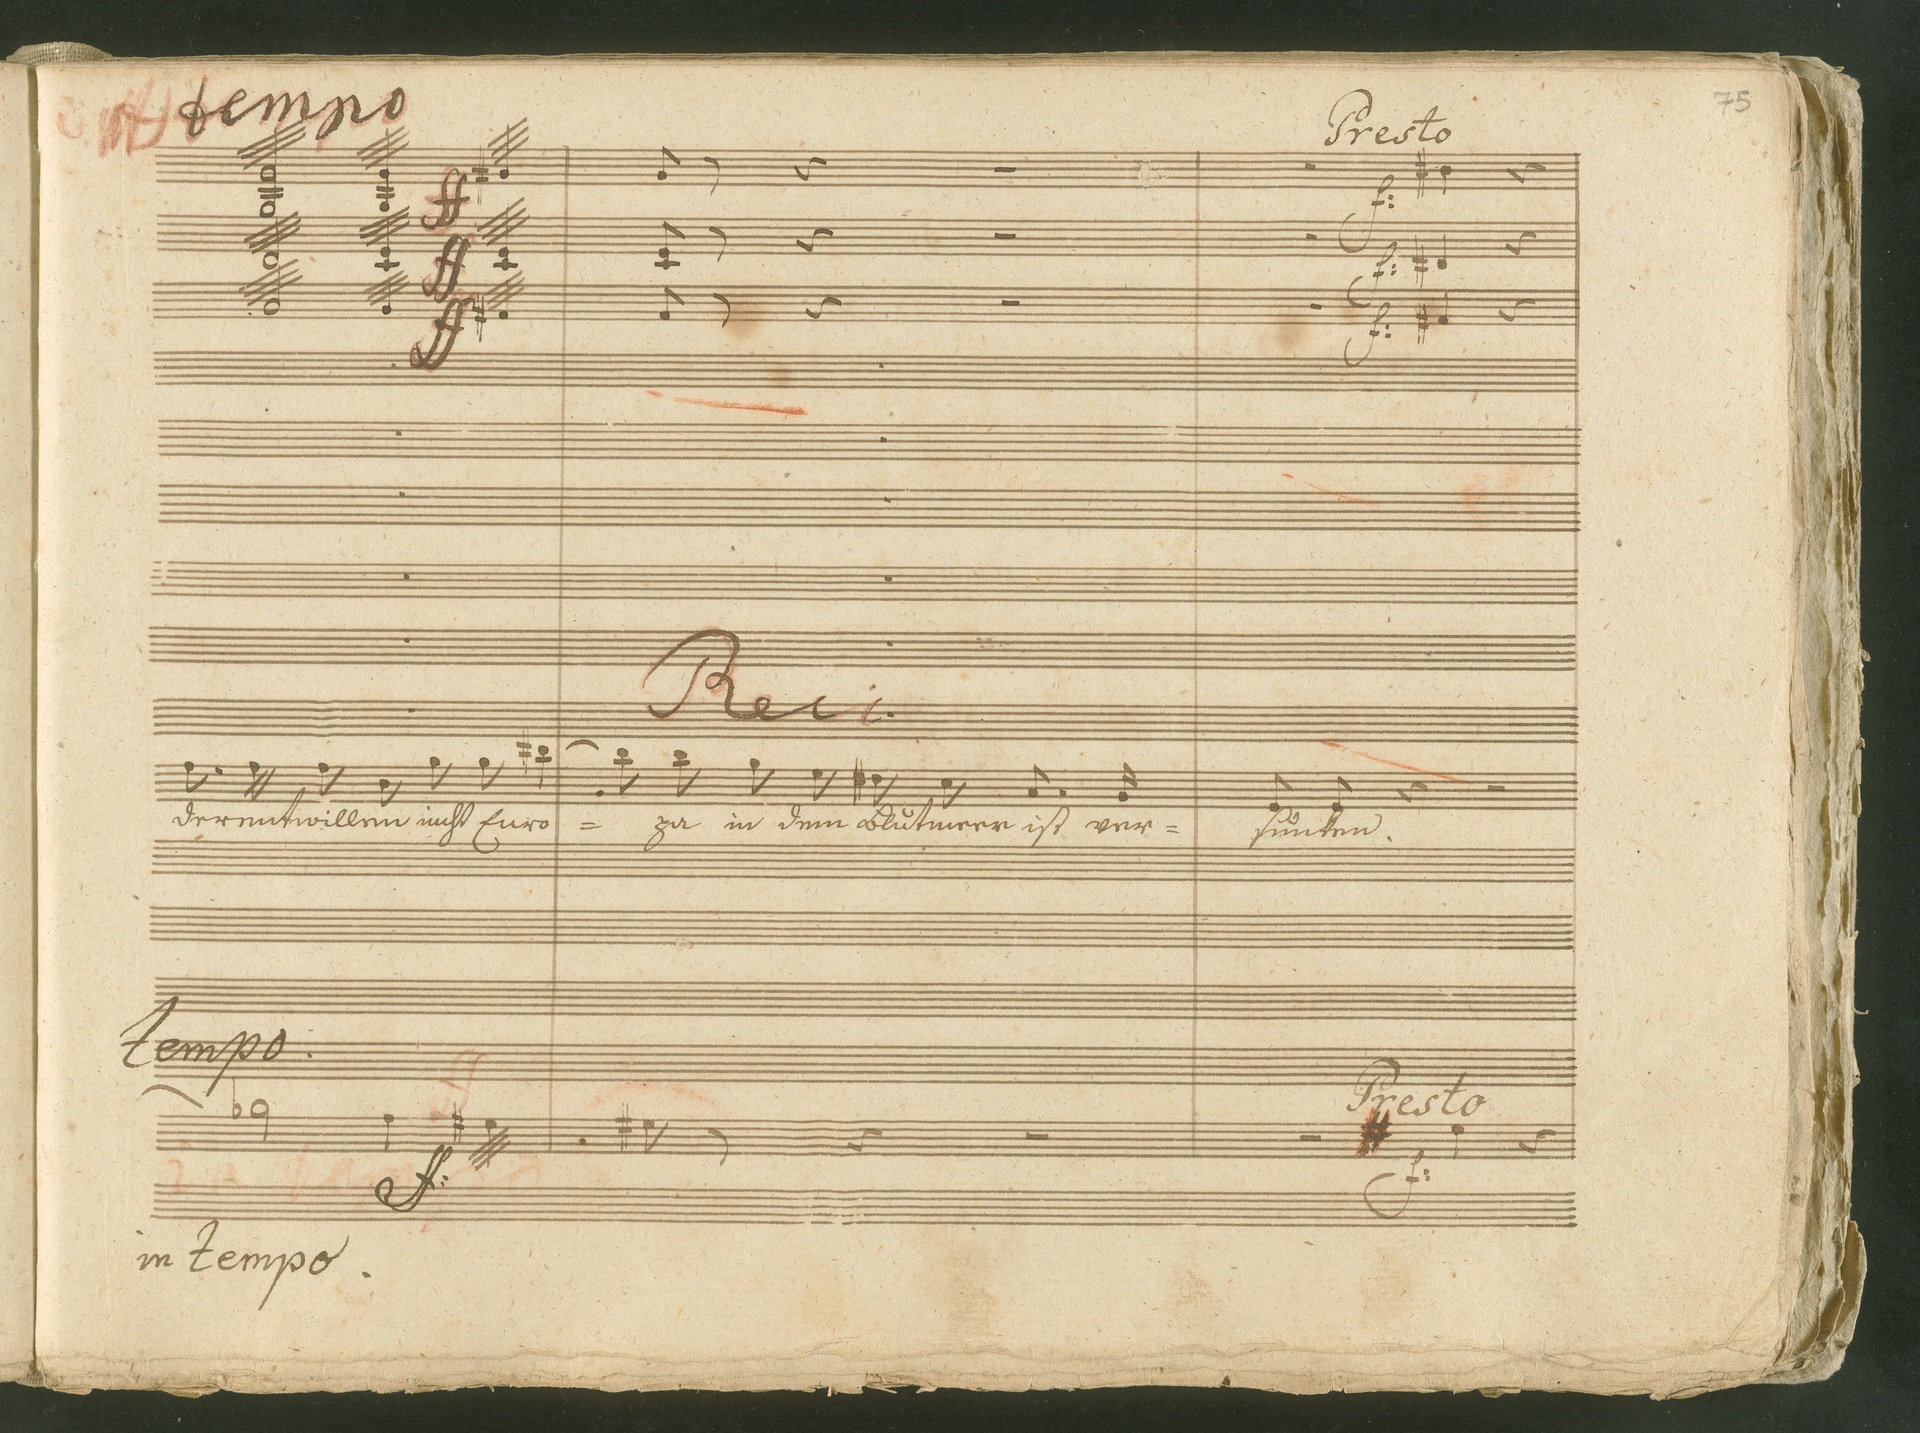 tempo
Presto
75
ff
ff
ff
f:
f:
f:
Reci.
derentwillen nicht Euro = pa in dem Blutmeer ist ver = sunken.
tempo.
Presto
f:
f:
in tempo.